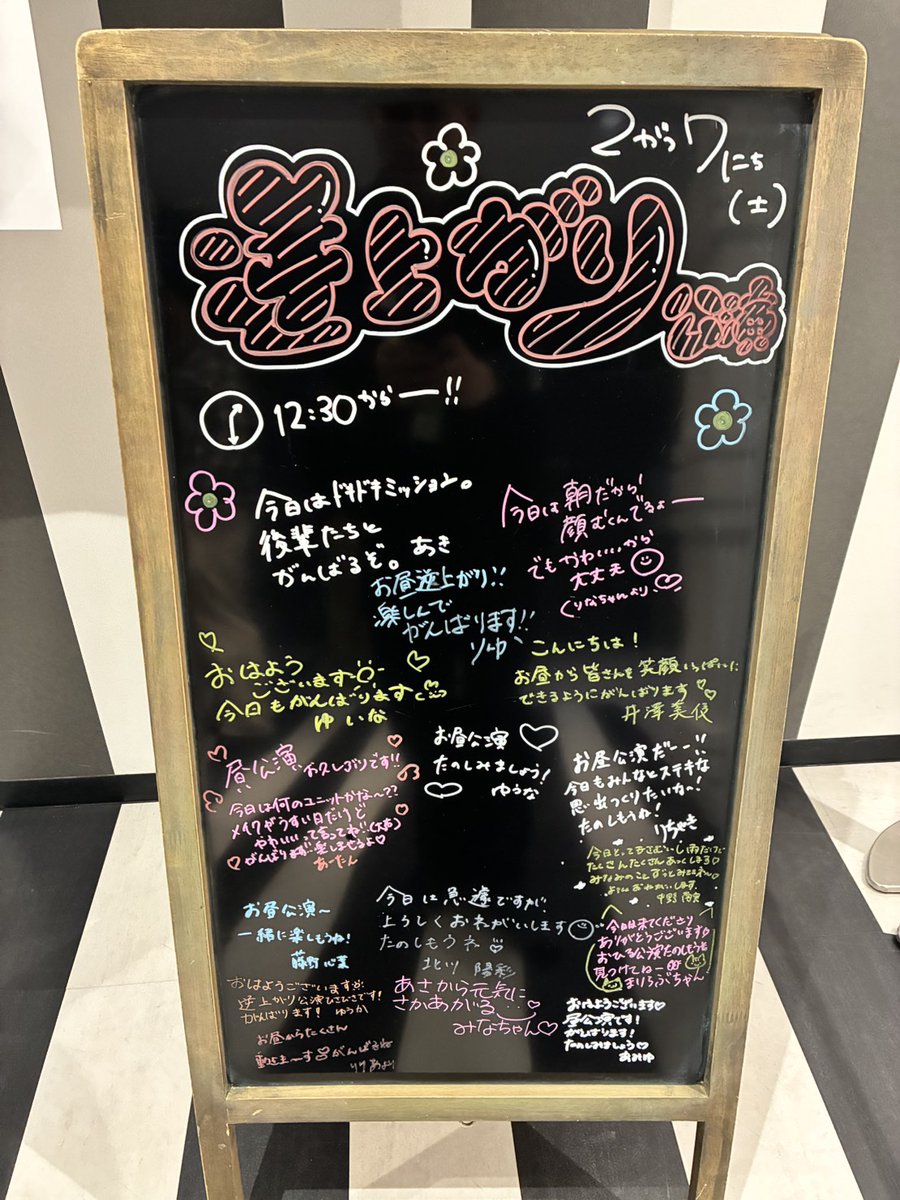 2がつ7にち
(土)
逆上がり
公演
12:30からー!!
今日はドキドキミッション。
後輩たちと
がんばるぞ。あき
今日は朝だから
顔むくんでるよー
でもかわいいから
大丈夫
(りなちゃんより
お昼逆上がり!!
楽しんで
がんばります!!
りゆ
おはよう
ございます
今日もがんばります
ゆいな
こんにちは!
お昼から皆さんを笑顔いっぱいに
できるようにがんばります
丹澤美優
昼公演、お久しぶりです!!
今日は何のユニットかな〜??
メイクがうすい日だけど
かわいいって言ってね!!
がんばります!!楽しませるよ
あーたん
お昼公演
たのしみましょう!
ゆうな
お昼公演だー!!
今日もみんなとステキな
思い出つくりたいな!
たのしもうね!
りちゃき
今日とってもさむいし雨だけど
たくさんたくさんあつくしまる
みなみのことずっとみててネ
よろしくおねがいします
お昼公演〜
一緒に楽しもうね!
藤野心葉
今日は急遽ですが
よろしくおねがいします
たのしもうネ
北川 陽彩
今日は来てくださり
ありがとうございます
おひる公演たのしもう
見つけてねー
まりろぶちゃん
おはようございます
逆上がり公演ひさびさです!
がんばります! ゆうか
あさから元気に
さかあがる
みなちゃん
おはようございます
昼公演です!
がんばります!
たのしみましょう
おみゆ
お昼からたくさん
動きまーす がんばるね